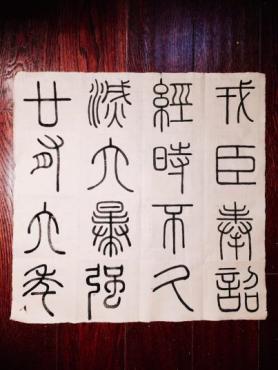 戎臣奉詔
經時不久
滅六暴強
廿有六年